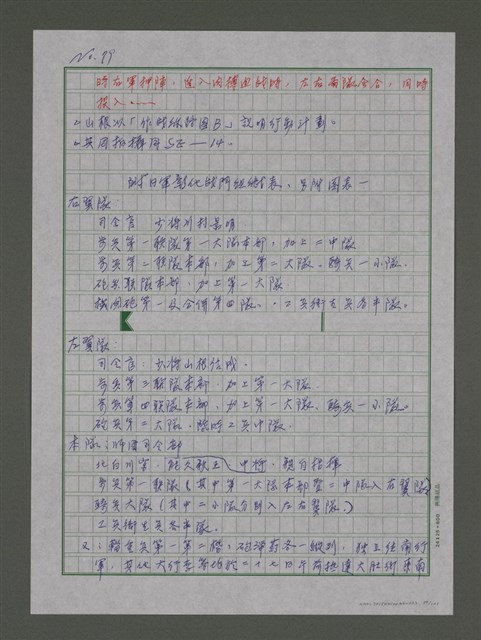 No. 99
時右軍抑陣，進入肉搏戰時，左右兩隊会合，同時
投入……
△山根以「作戰線路图B」說明行動計劃。
△共同拍攝同S52—14.
附日軍彰化戰鬥組織表、另附圖表一
右翼隊：
司令官：少將川村景明
步兵第一联隊第一大隊本部，加上二中隊
步兵第二联隊本部，加上第二大隊、騎兵一小隊.
砲兵联隊本部，加上第一大隊
機関砲第一及合併第四隊、工兵衛生兵各半隊。
左翼隊：
司令官：少將山根信成.
步兵第三联隊本部，加上第一大隊.
步兵第四联隊本部，加上第一大隊、騎兵一小隊。
砲兵第二大隊、臨時工兵中隊.
本隊：師團司令部
北白川宮，能久親王，中將，親自指揮
步兵第一联隊（其中第一大隊本部暨二中隊入右翼隊）
騎兵大隊（其中二小隊分別入左右翼隊.）
工兵衛生兵各半隊。
又：輜重兵第一第二，砲弹葯各一縱列，独立往南行
軍，其他大行李等均於二十七日午前抵達大肚街東南
24×25=600